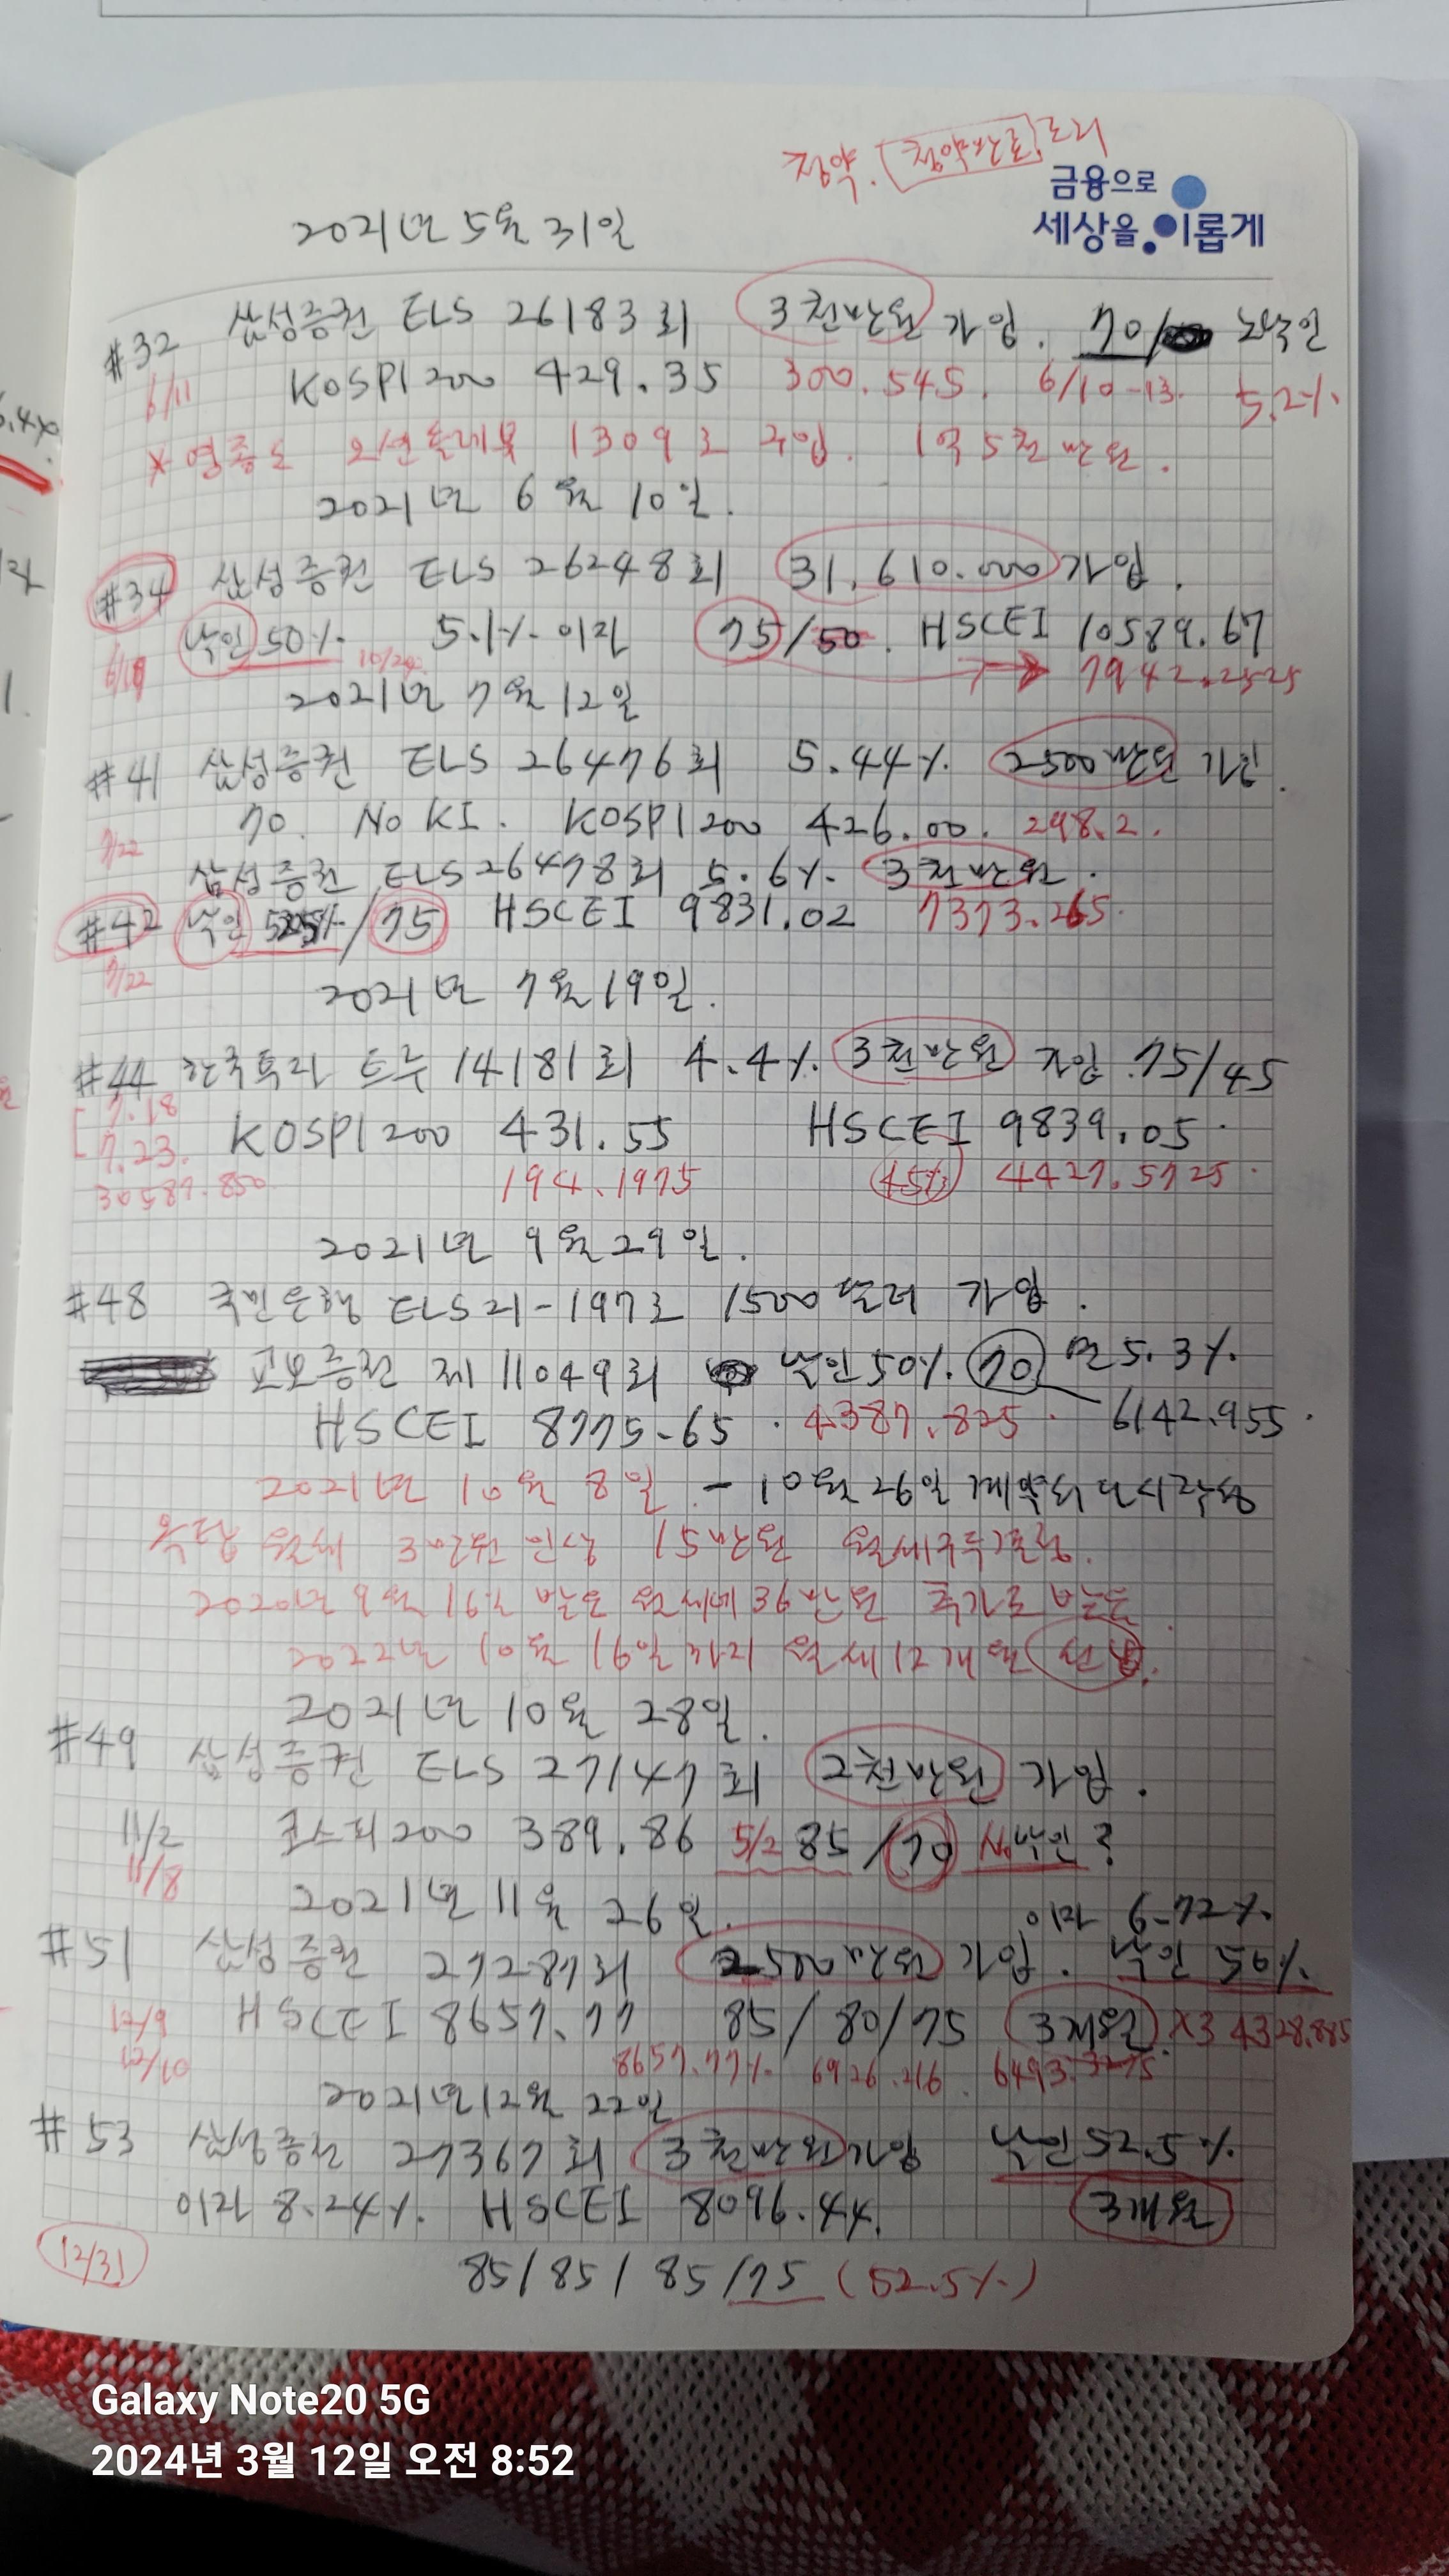 금융으로
세상을 이롭게
2021년 5월 31일
#32 삼성증권 ELS 26183회 3천만원 가입. 70/ 노녹인
6/11 KOSPI200 429.35 300.545. 6/10-13. 5.2%.
1309 1억5천만원.
2021년 6월 10일.
#34 삼성증권 ELS 26248회 31.610.000 가입.
낙인 50%. 5.1%. 이자 75/50. HSCEI 10589.67
10/20 → 7942.2525
2021년 7월 12일
#41 삼성증권 ELS 26476회 5.44%. 2500만원 가입.
70. No KI. KOSPI200 426.00. 298.2.
7/22
삼성증권 ELS 26478회 5.6%. 3천만원.
#42 낙인 /75 HSCEI 9831.02 7373.265.
7/22
2021년 7월 19일.
#44 한국투자 트루 14181회 4.4%. 3천만원 가입 75/45
7.18
7.23. KOSPI200 431.55 HSCEI 9839.05.
30587.850 194.1975 (45%) 4427.5725.
2021년 9월 29일.
#48 국민은행 ELS 21-197호 1500달러 가입.
교보증권 제11049회 낙인50%. 70 연5.3%.
HSCEI 8775-65. 4387.825. 6142.955.
2021년 10월 8일 - 10월 26일
월세 15만원
월세에 36만원 추가로
2022년 10월 16일까지 월세 12개월
2021년 10월 28일.
#49 삼성증권 ELS 27147회 2천만원 가입.
11/2 코스피200 389.86 5/2 85/70 No낙인?
11/8
2021년 11월 26일. 이자 6-72%.
#51 삼성증권 27287회 2500만원 가입. 낙인 50%.
12/9 HSCEI 8657.77 85/80/75 3개월 X3 4328.885
12/10 8657.77%. 6926.216. 6493.3275
2021년 12월 22일
#53 삼성증권 27367회 3천만원가입 낙인52.5%.
이자 8.24%. HSCEI 8096.44. 3개월
12/31
85/85/85/75 (52.5%)
Galaxy Note20 5G
2024년 3월 12일 오전 8:52